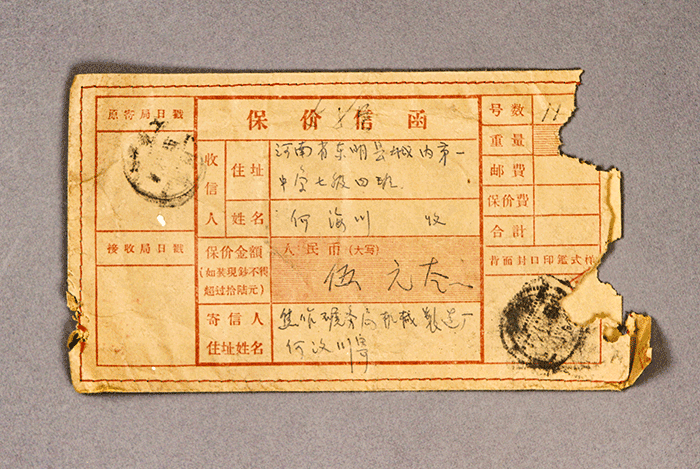 原寄局日戳
保价信函
号数 11
收信人
住址
河南省东明县城内第一
中学七级四班
重量
邮费
保价费
合計
姓名
何海川 收
接收局日戳
保价金額
(如装現鈔不得
超过拾陆元)
人民币(大写)
伍元
背面封口印鑑式样
寄信人
住址姓名
焦作矿务局机械製造厂
何汉川寄